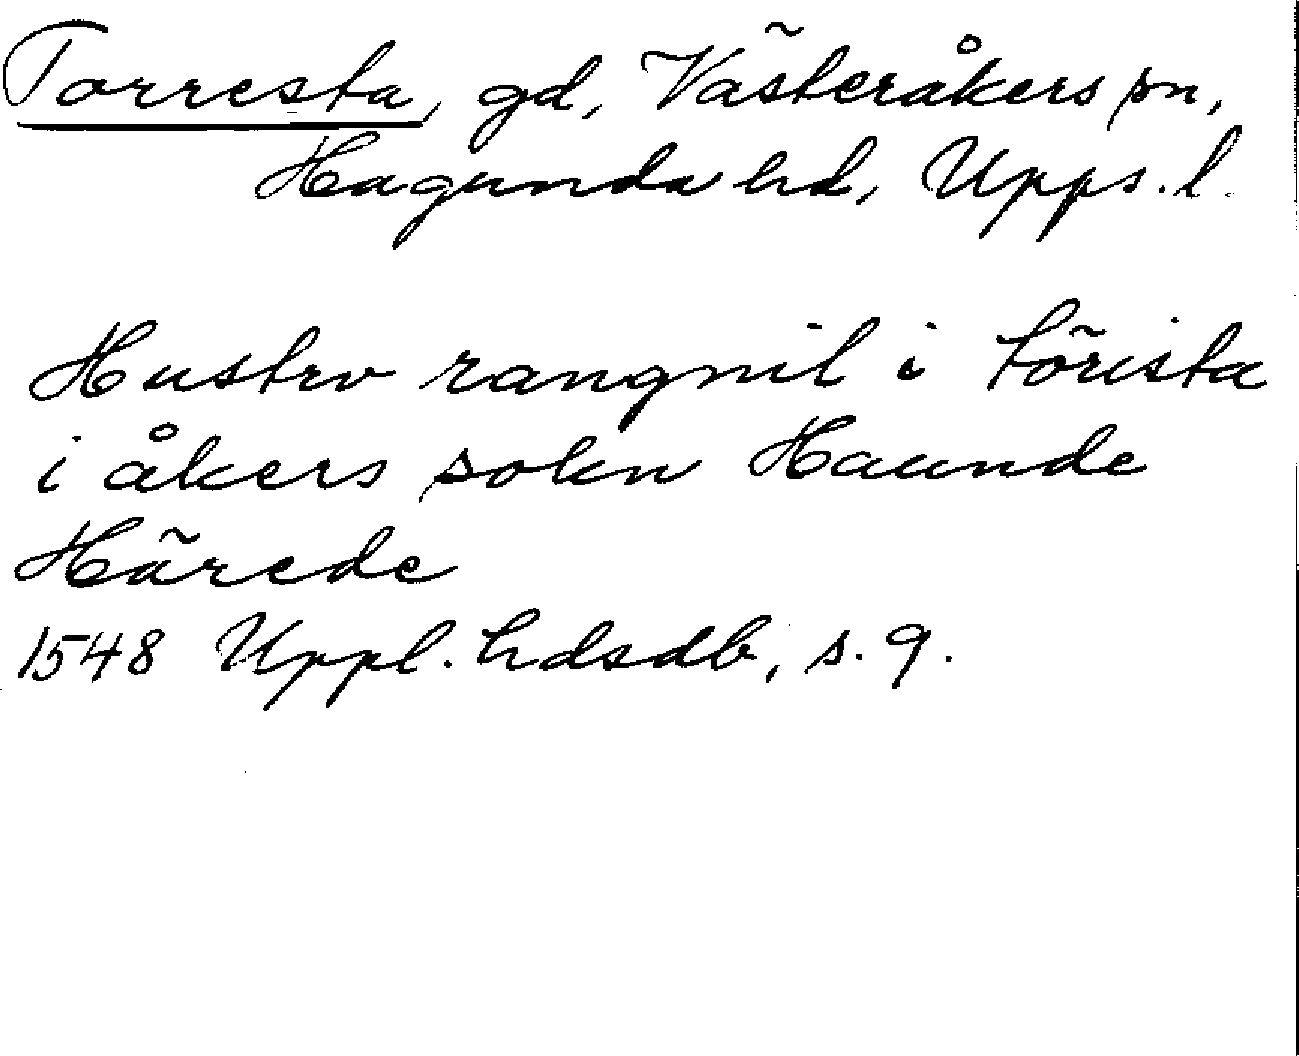 Torresta, gd, Västeråkers sn,
Hagunda hd, Upps. l.
Hustrv rangnil i törista
i åkers sokn Haunde
Härede
1548 Uppl. hdsdb, s. 9.